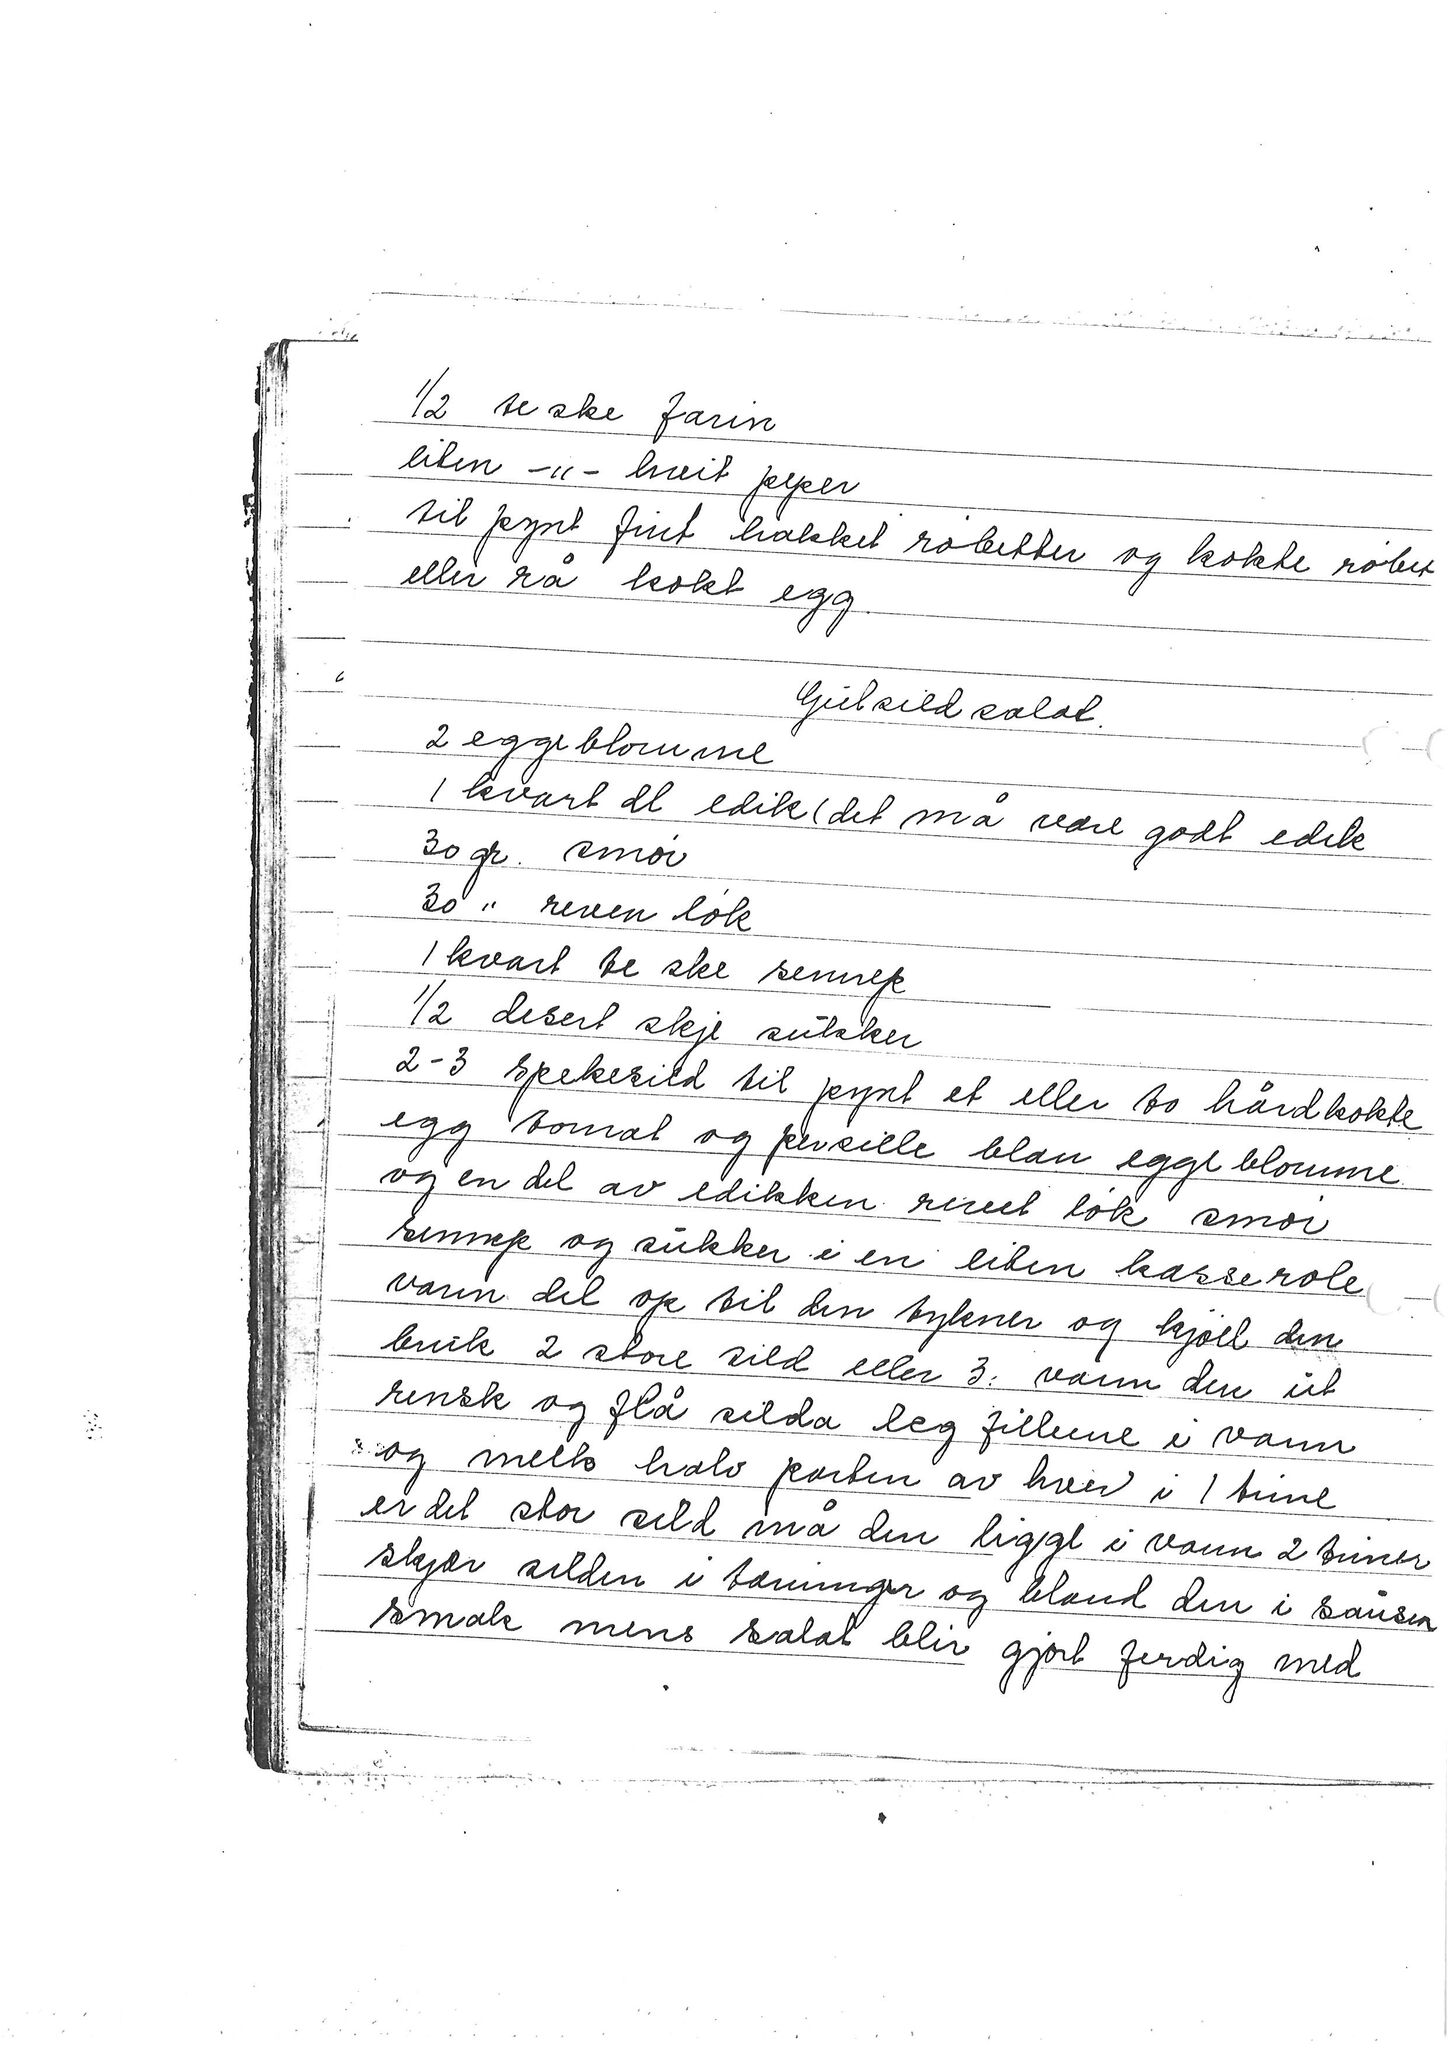 1/2 te ske farin
liten -"- hveit peper
til pynt fint hakket röbetter og kokte röbet
eller rå kokt egg.
Gulsild salat.
2 eggeblomme
1 kvart dl edik (det må være godt edik
30 gr. smör
30 " reven lök
1 kvart te ske sennep
1/2 desert skje sukker
2-3 spekesild til pynt et eller to hårdkokte
egg tomat og persille blan eggeblomme
og en del av edikken revet lök smör
sennep og sukker i en liten kasserole
varm del op til den tykner og kjöel den
bruk 2 store sild eller 3. vann den ut
rensk og flå silda leg fillene i vann
og melk halv parten av hver i 1 time
er det stor sild må den ligge i vann 2 timer
skjær silden i terninger og bland den i sausen
smak mens salat blir gjort ferdig med